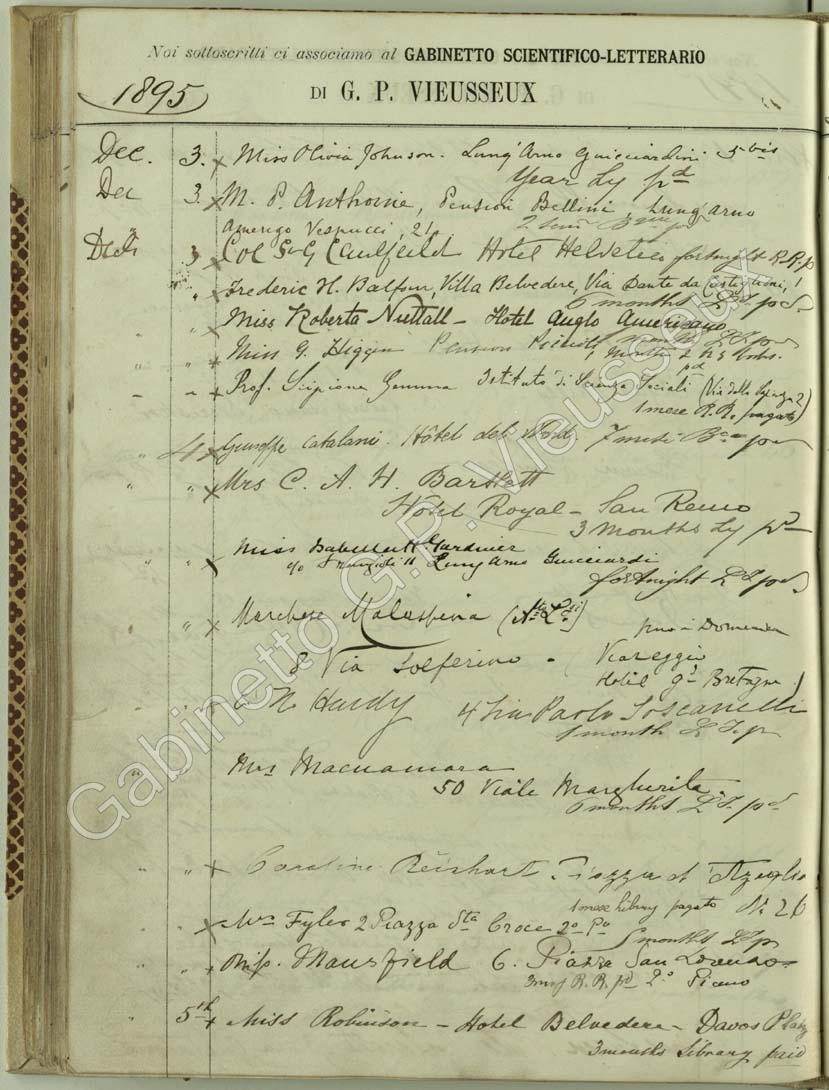 Noi sottoscritti ci associamo al GABINETTO SCIENTIFICO-LETTERARIO
1895 DI G. P. VIEUSSEUX
Dec. 3. x Miss Olivia Johnson. Lung'Arno Guicciardini 5 bis
Year Ly pd
Dec 3. x M. P. Anthoine, Pension Bellini, Lungarno
Amerigo Vespucci, 21
Dec 3 x Col St G Caulfeild Hotel Helvetia fortnight R.R. p
" Frederic H. Balfour, Villa Belvedere, Via Dante da Castiglioni, 1
6 months L.Y. pd
" Miss Roberta Nuttall - Hotel Anglo Americano
" x Miss G. Higgin Pension 1 month 2 Works.
pd
" x Prof. Scipione Gemma Istituto di Scienze Sociali (Via della 2)
1 mese R.R. pagato)
" 4 x Giuseppe Catalani. Hôtel del Nord. 7 mesi
" " x Mrs C. A. H. Bartlett
Hotel Royal - San Remo
3 Months Ly pd
" " x Miss Gardiner
c/o 11 Lung Arno Guicciardi
fortnight L.Y. pd
" x Marchese Malaspina
8 Via Solferino - ( Viareggio
Hotel Gd Bretagna)
" x Hardy 4 Via Paolo Toscanelli
1 month L.Y. p
" Mrs Macnamara
50 Viale Margherita.
6 months L.Y. pd
" " x Caroline Reishart Piazza d'Azeglio
1 mese library pagato No 26
x Mrs Fyler 2 Piazza Sta Croce 2o Po
months L.Y. p
" " x Miss. Mansfield 6. Piazza San Lorenzo
R.R. pd 2.o Piano
" 5th x Miss Robinson - Hotel Belvedere - Davos Platz
3 months Library paid
Gabinetto G.P. Vieusseux